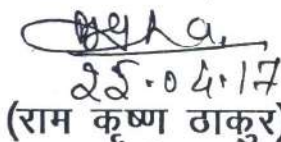 25.04.17
(राम कृष्ण ठाकुर)